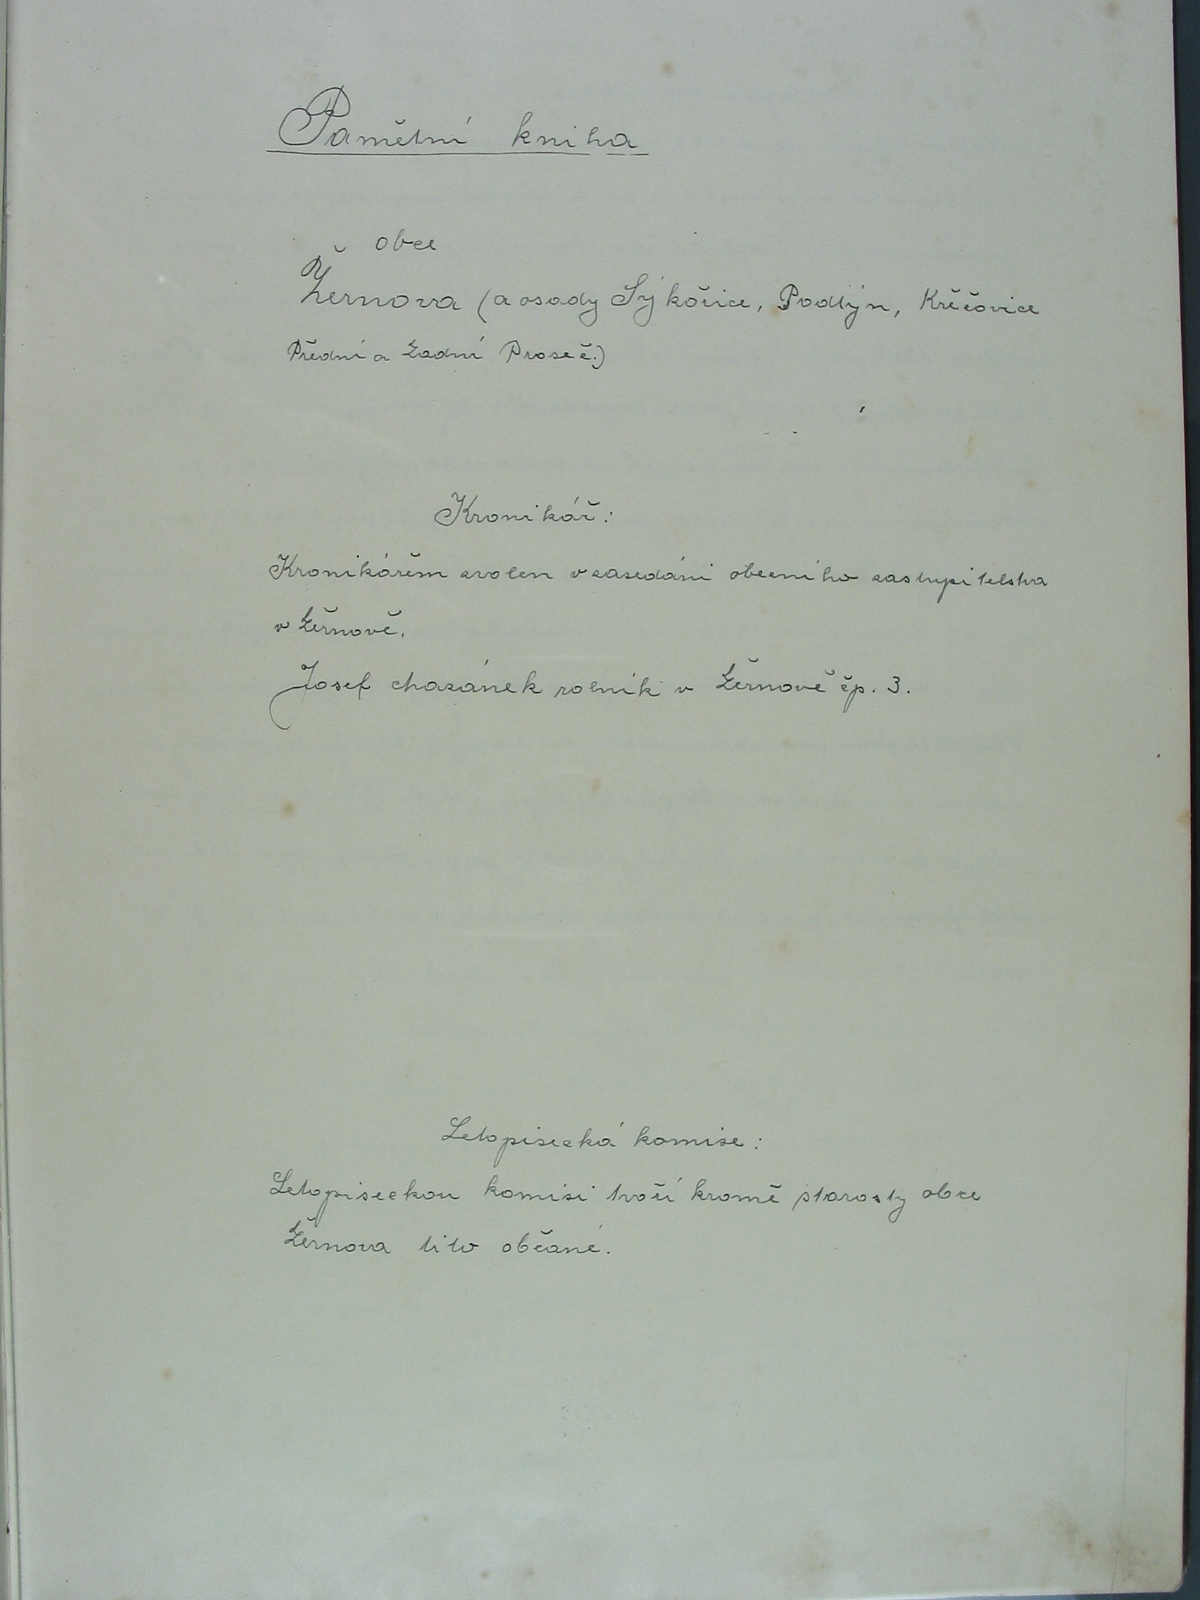 Pamětní kniha
obce
Žernova (a osady Sýkořice, Podtýn, Křečovice
Přední a Zadní Proseč.)
Kronikář:
Kronikářem zvolen v zasedání obecního zastupitelstva
v Žernově.
Josef Chazánek rolník v Žernově čp. 3.
Letopisecká komise:
Letopiseckou komisi tvoří kromě starosty obce
Žernova tito občané.